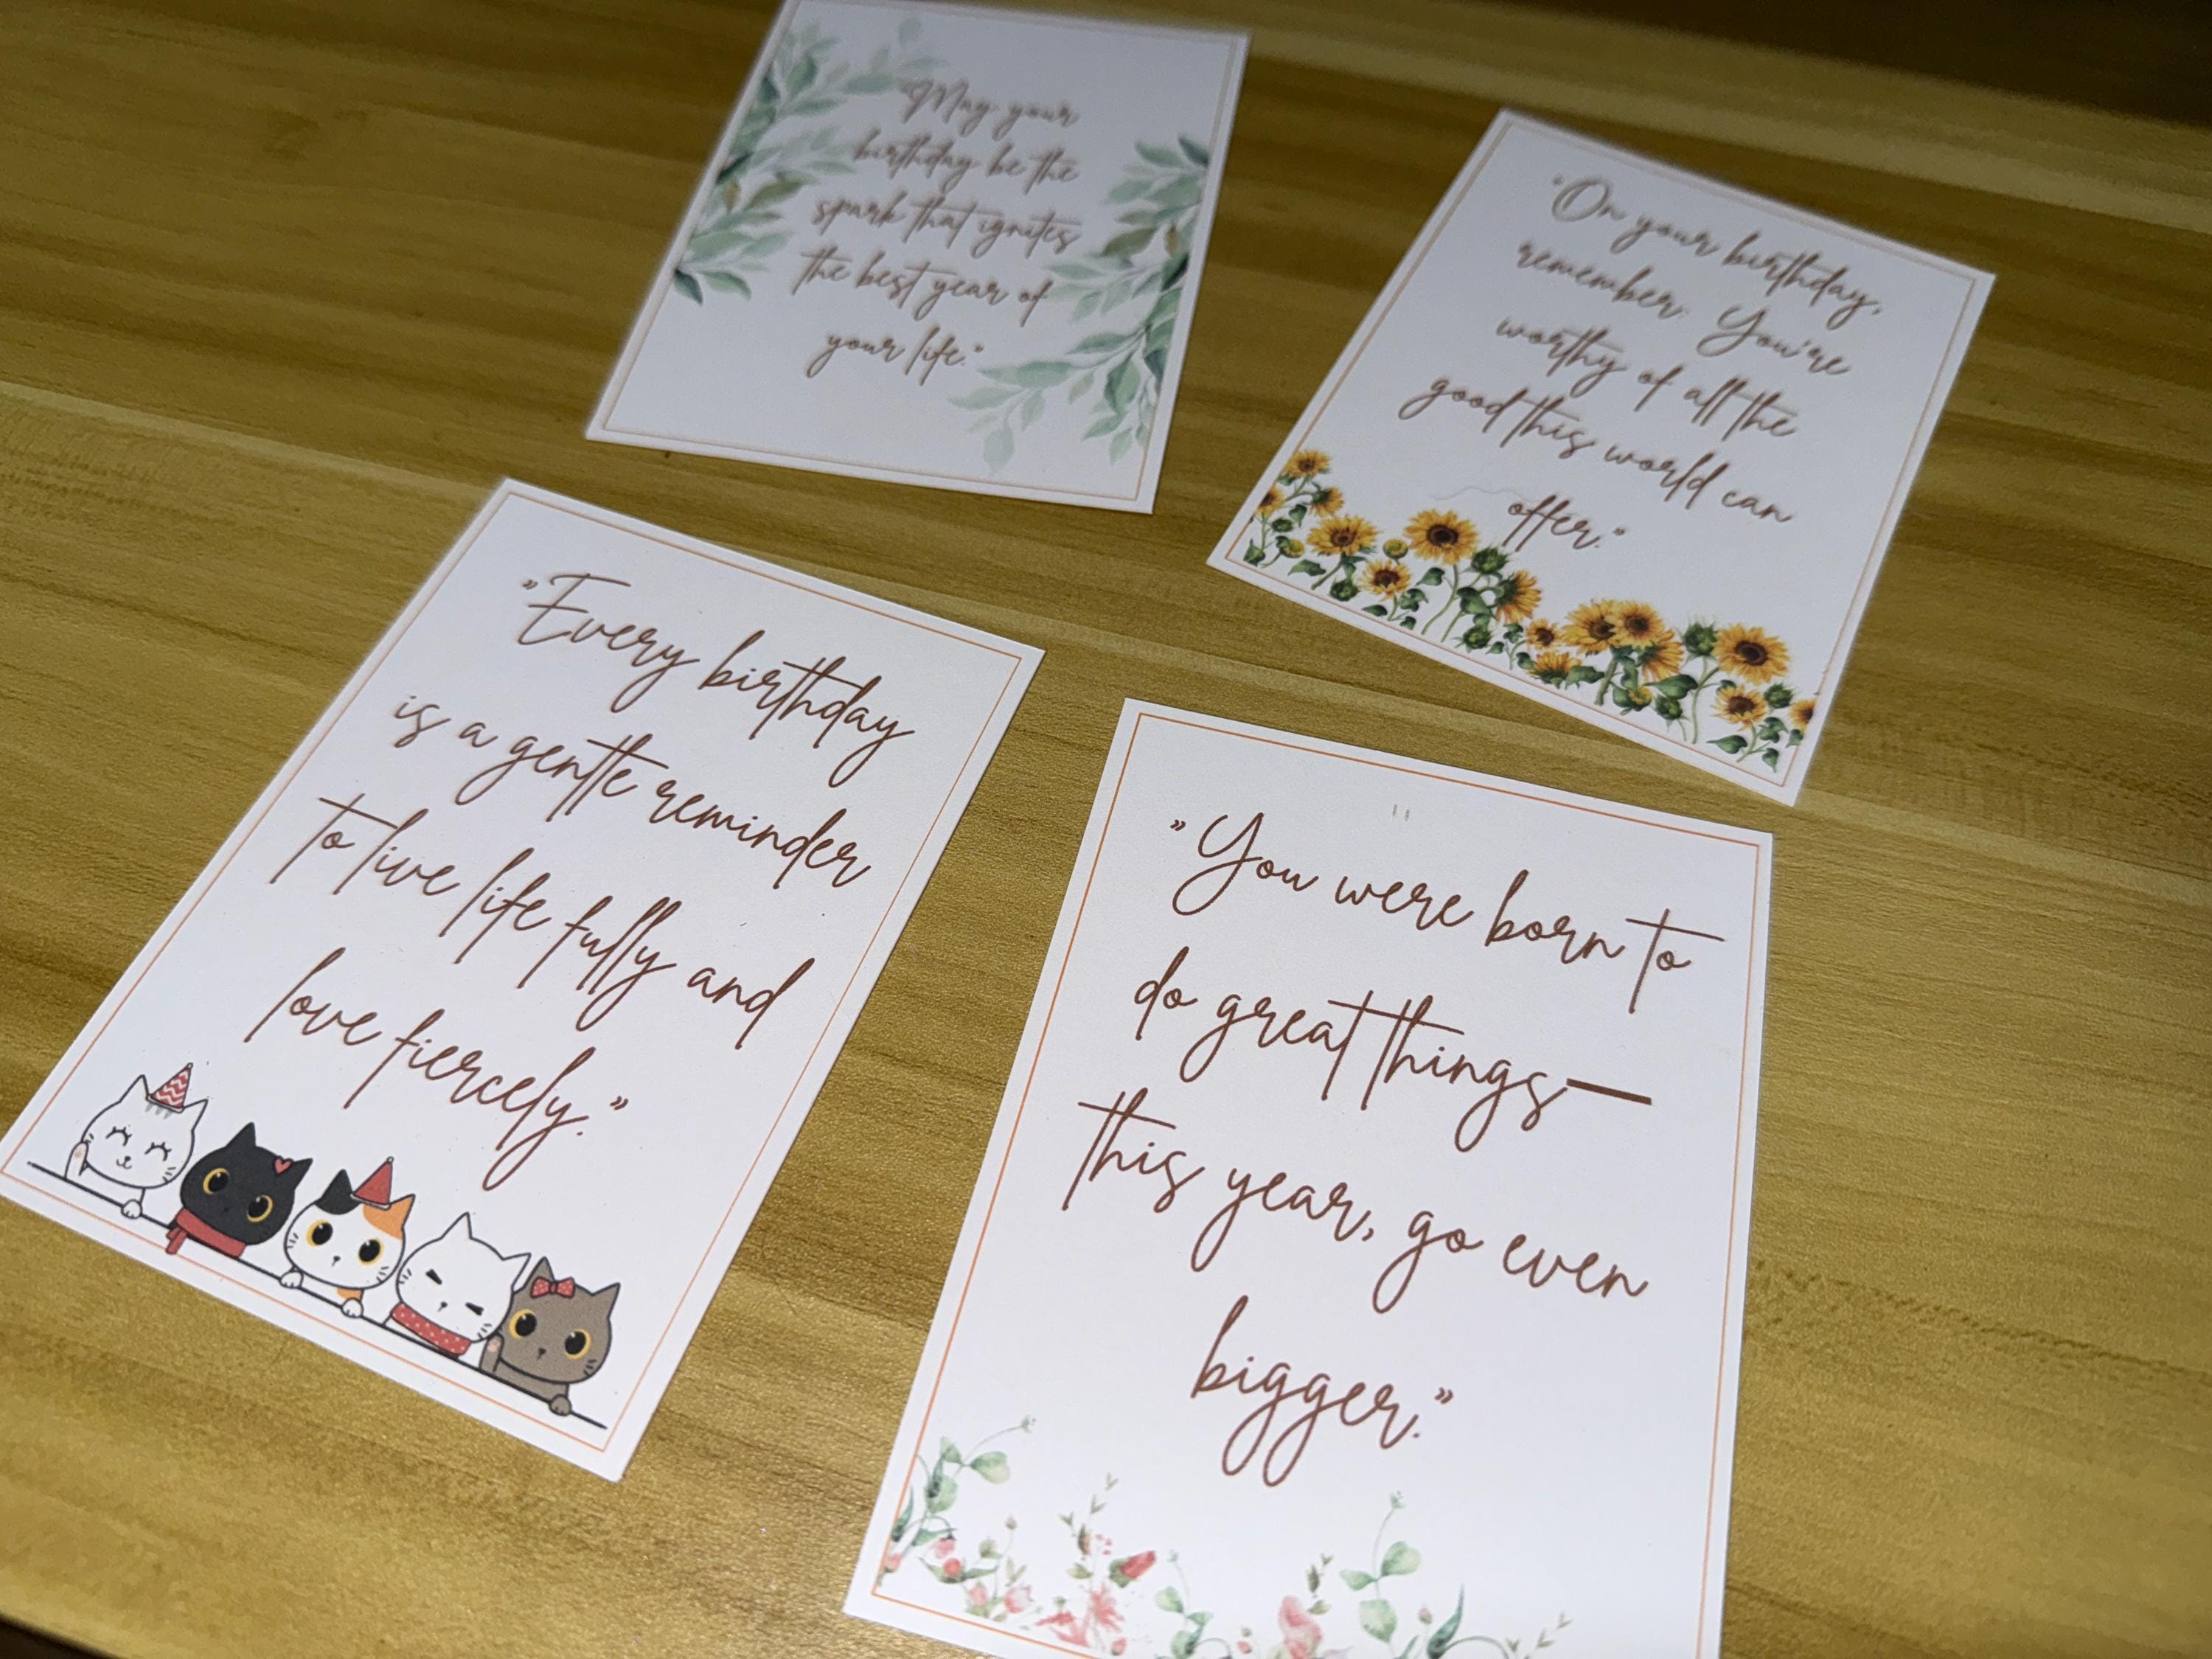 "May your
birthday be the
spark that ignites
the best year of
your life."
"On your birthday,
remember: You're
worthy of all the
good this world can
offer."
"Every birthday
is a gentle reminder
to live life fully and
love fiercely."
"You were born to
do great things—
this year, go even
bigger."